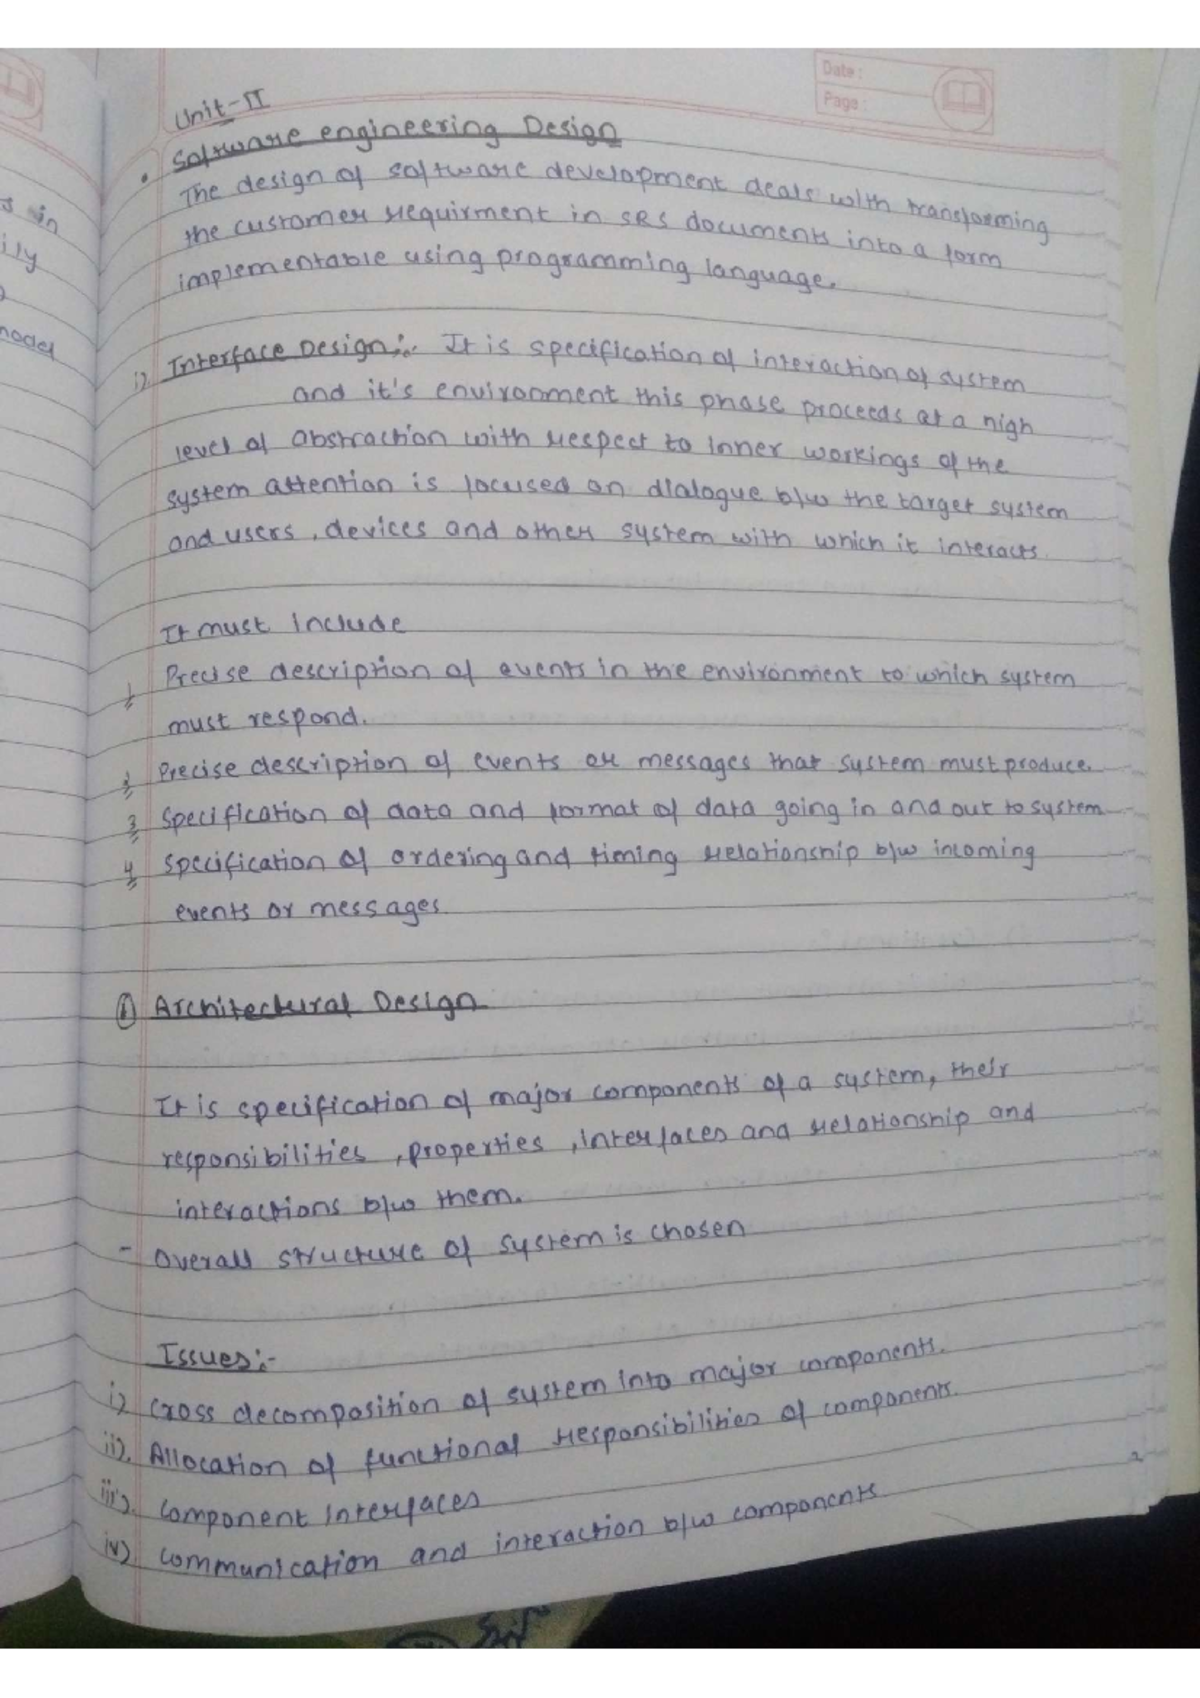 Date :
Page :
Unit-II
• Software engineering Design
The design of software development deals with transforming
the customer requirment in SRS documents into a form
implementable using programming language.
i) Interface Design:- It is specification of interaction of system
and it's environment this phase proceeds at a high
level of abstraction with respect to inner workings of the
system attention is focused on dialogue b/w the target system
and users, devices and other system with which it interacts.
It must include
1 Precise description of events in the environment to which system
must respond.
2 Precise description of events or messages that system must produce.
3 Specification of data and format of data going in and out to system
4 Specification of ordering and timing relationship b/w incoming
events or messages.
Architectural Design
It is specification of major components of a system, their
responsibilities, properties, interfaces and relationship and
interactions b/w them.
- Overall structure of system is chosen
Issues:-
i) Cross decomposition of system into major components.
ii). Allocation of functional responsibilities of components.
iii). Component interfaces
iv) Communication and interaction b/w components.
s in
ily
model